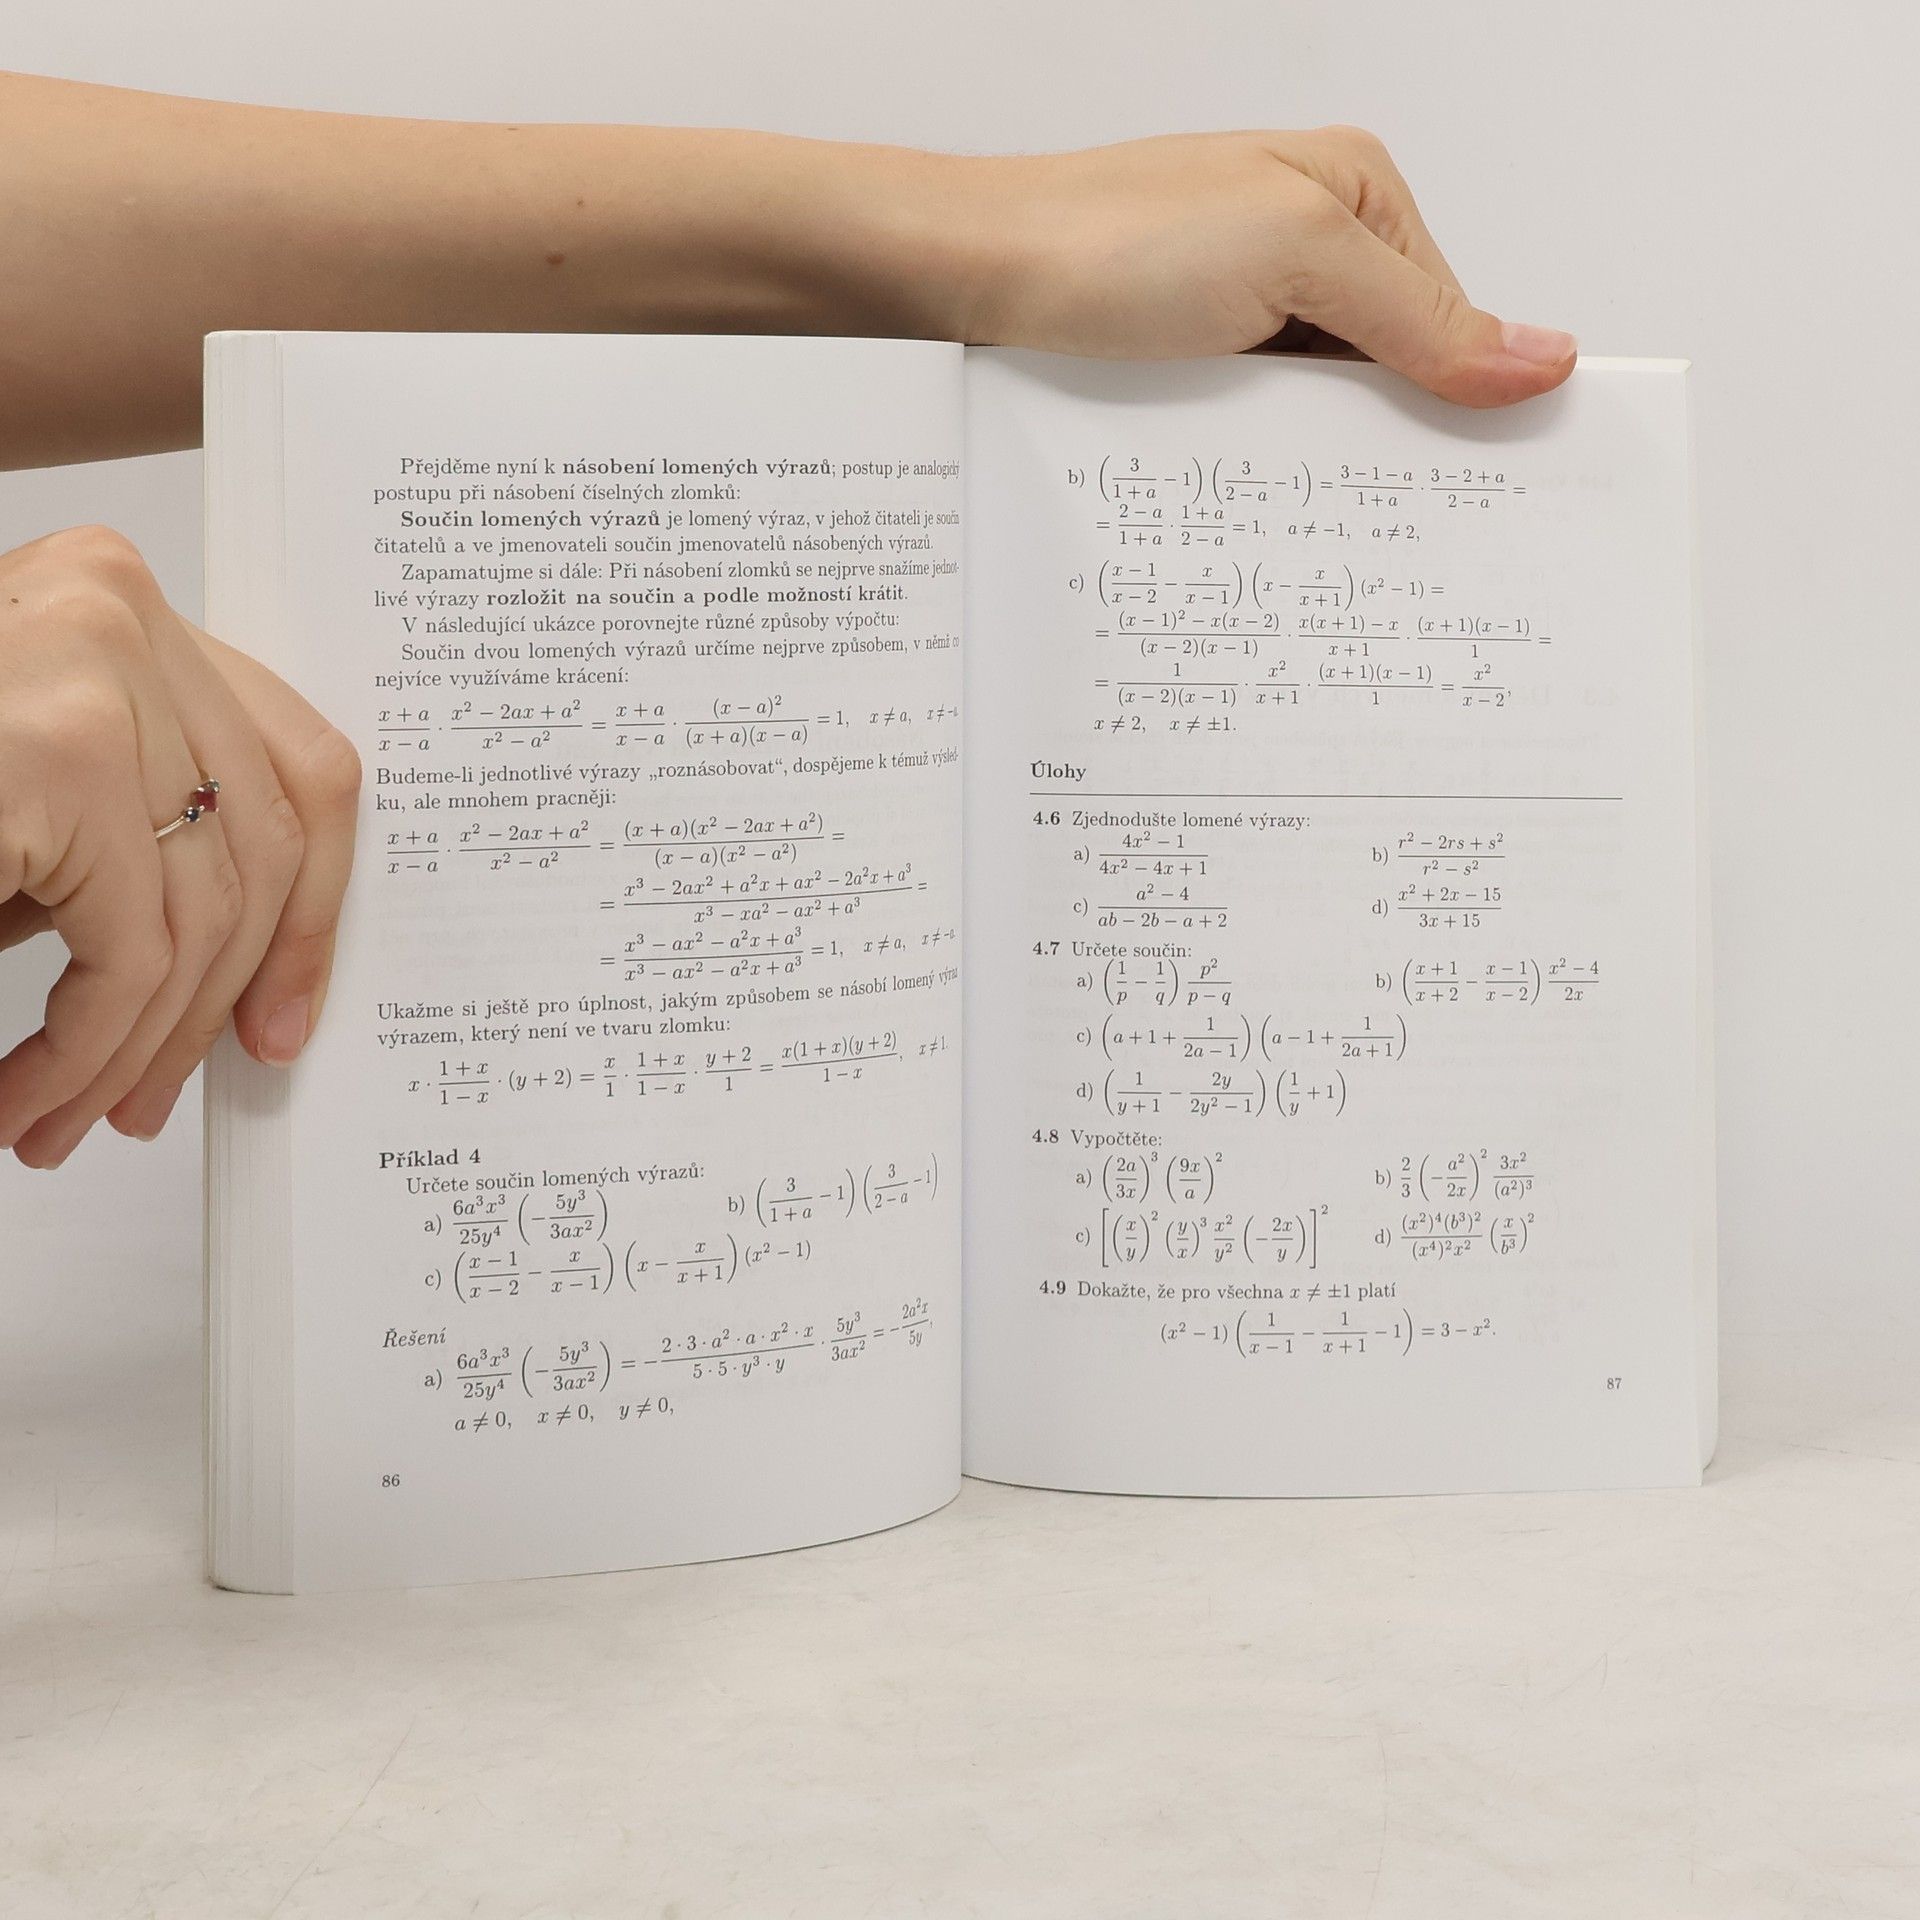 Přejděme nyní k násobení lomených výrazů; postup je analogický
postupu při násobení číselných zlomků:
Součin lomených výrazů je lomený výraz, v jehož čitateli je součin
čitatelů a ve jmenovateli součin jmenovatelů násobených výrazů.
Zapamatujme si dále: Při násobení zlomků se nejprve snažíme jednot-
livé výrazy rozložit na součin a podle možností krátit.
V následující ukázce porovnejte různé způsoby výpočtu:
Součin dvou lomených výrazů určíme nejprve způsobem, v němž co
nejvíce využíváme krácení:
(x + a)/(x − a) · (x² − 2ax + a²)/(x² − a²) = (x + a)/(x − a) · (x − a)²/((x + a)(x − a)) = 1, x ≠ a, x ≠ −a.
Budeme-li jednotlivé výrazy „roznásobovat“, dospějeme k témuž výsled-
ku, ale mnohem pracněji:
(x + a)/(x − a) · (x² − 2ax + a²)/(x² − a²) = ((x + a)(x² − 2ax + a²))/((x − a)(x² − a²)) =
= (x³ − 2ax² + a²x + ax² − 2a²x + a³)/(x³ − xa² − ax² + a³) =
= (x³ − ax² − a²x + a³)/(x³ − ax² − a²x + a³) = 1, x ≠ a, x ≠ −a.
Ukažme si ještě pro úplnost, jakým způsobem se násobí lomený výraz
výrazem, který není ve tvaru zlomku:
x · (1 + x)/(1 − x) · (y + 2) = x/1 · (1 + x)/(1 − x) · (y + 2)/1 = (x(1 + x)(y + 2))/(1 − x), x ≠ 1.
Příklad 4
Určete součin lomených výrazů:
a) 6a³x³/25y⁴ (−5y³/3ax²) b) (3/(1 + a) − 1) (3/(2 − a) − 1)
c) ((x − 1)/(x − 2) − x/(x − 1)) (x − x/(x + 1)) (x² − 1)
Řešení
a) 6a³x³/25y⁴ (−5y³/3ax²) = −(2 · 3 · a² · a · x² · x)/(5 · 5 · y³ · y) · 5y³/3ax² = −2a²x/5y,
a ≠ 0, x ≠ 0, y ≠ 0,
86
b) (3/(1 + a) − 1) (3/(2 − a) − 1) = (3 − 1 − a)/(1 + a) · (3 − 2 + a)/(2 − a) =
= (2 − a)/(1 + a) · (1 + a)/(2 − a) = 1, a ≠ −1, a ≠ 2,
c) ((x − 1)/(x − 2) − x/(x − 1)) (x − x/(x + 1)) (x² − 1) =
= ((x − 1)² − x(x − 2))/((x − 2)(x − 1)) · (x(x + 1) − x)/(x + 1) · ((x + 1)(x − 1))/1 =
= 1/((x − 2)(x − 1)) · x²/(x + 1) · ((x + 1)(x − 1))/1 = x²/(x − 2),
x ≠ 2, x ≠ ±1.
Úlohy
4.6 Zjednodušte lomené výrazy:
a) (4x² − 1)/(4x² − 4x + 1) b) (r² − 2rs + s²)/(r² − s²)
c) (a² − 4)/(ab − 2b − a + 2) d) (x² + 2x − 15)/(3x + 15)
4.7 Určete součin:
a) (1/p − 1/q) p²/(p − q) b) ((x + 1)/(x + 2) − (x − 1)/(x − 2)) (x² − 4)/2x
c) (a + 1 + 1/(2a − 1)) (a − 1 + 1/(2a + 1))
d) (1/(y + 1) − 2y/(2y² − 1)) (1/y + 1)
4.8 Vypočtěte:
a) (2a/3x)³ (9x/a)² b) 2/3 (−a²/2x)² 3x²/(a²)³
c) [(x/y)² (y/x)³ x²/y² (−2x/y)]² d) ((x²)⁴(b³)²)/((x⁴)²x²) (x/b³)²
4.9 Dokažte, že pro všechna x ≠ ±1 platí
(x² − 1) (1/(x − 1) − 1/(x + 1) − 1) = 3 − x².
87